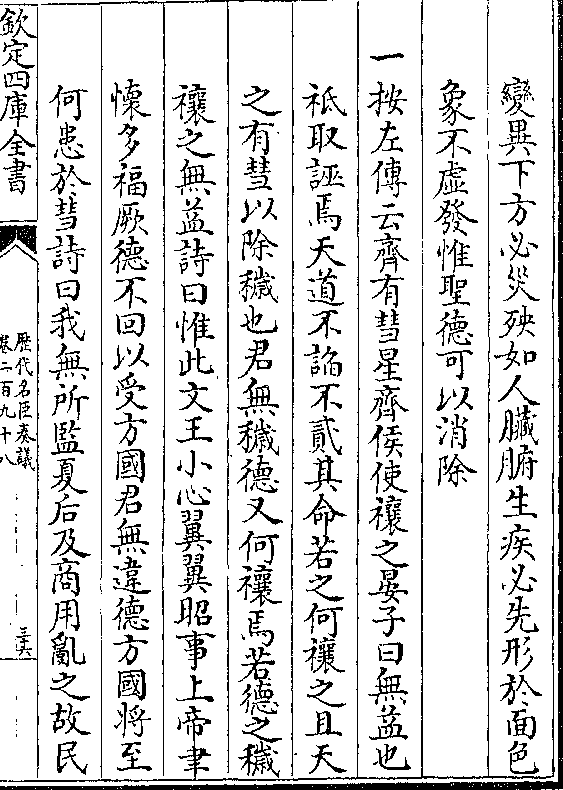 變異下方必災殃如人臟腑生疾必先形於面色
象不虛發惟聖德可以消除
一按左傳云齊有彗星齊侯使禳之晏子曰無益也
祇取誣焉天道不謟不貳其命若之何禳之且天
之有彗以除穢也君無穢德又何禳焉若德之穢
禳之無益詩曰惟此文王小心翼翼昭事上帝聿
懷多福厥德不回以受方國君無違德方國將至
何患於彗詩曰我無所監夏后及商用亂之故民
欽定四庫全書
歷代名臣奏議
卷二百九十八
三六